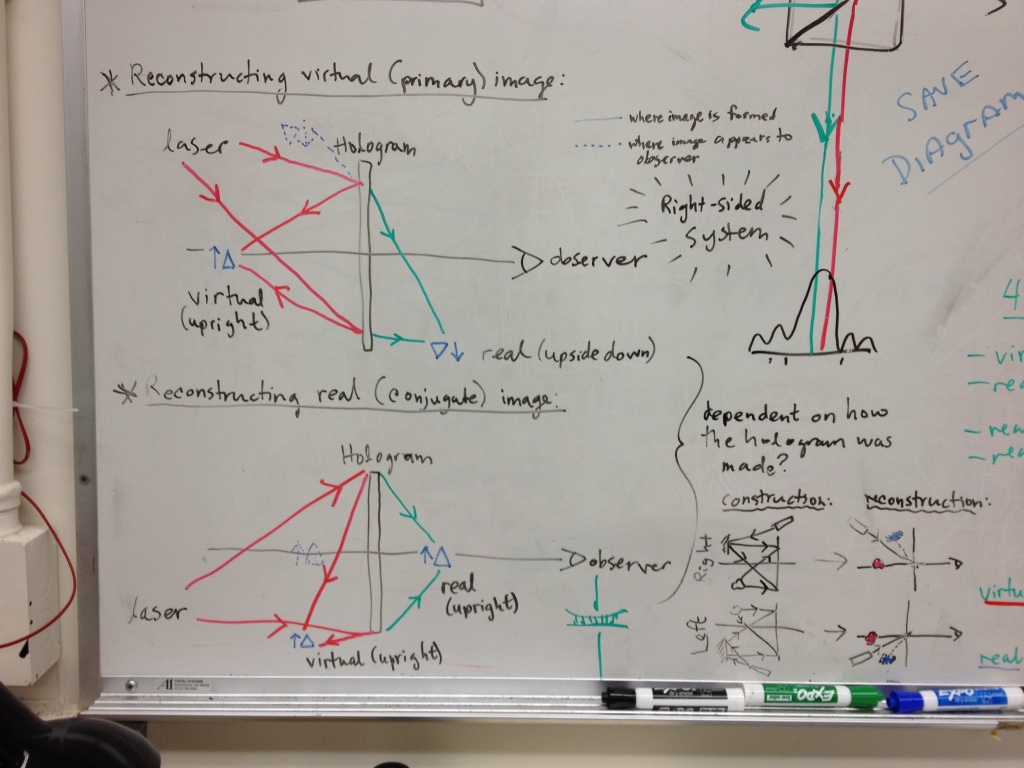 * Reconstructing virtual (primary) image:
laser
Hologram
where image is formed
where image appears to
observer
SAVE
DIAGRAM
Right-sided
System
observer
virtual
(upright)
real (upside down)
4
- vir
- rea
- rea
- rea
* Reconstructing real (conjugate) image:
Hologram
dependent on how
the hologram was
made?
construction:
reconstruction:
Right
Left
observer
real
(upright)
laser
virtual (upright)
virtu
real
EXPO
EXPO